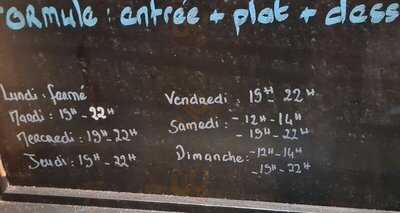 FORMULE : entrée + plat + dess
Lundi : fermé
Mardi : 19H - 22H
Mercredi : 19H - 22H
Jeudi : 19H - 22H
Vendredi : 19H - 22H
Samedi : - 12H - 14H
- 19H - 22H
Dimanche : - 12H - 14H
- 19H - 22H